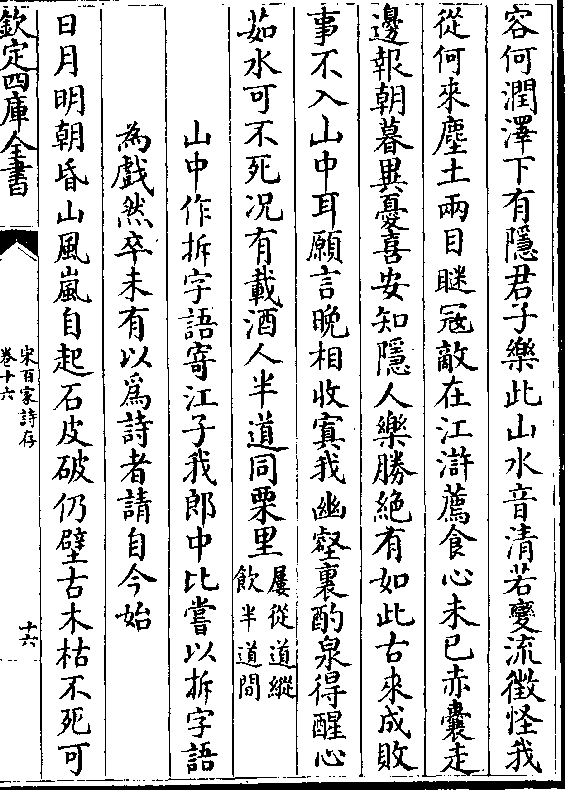 容何潤澤下有隱君子樂此山水音清若夔流徵怪我
從何來塵土兩目瞇冦敵在江滸薦食心未已赤囊走
邊報朝暮異憂喜安知隱人樂勝絶有如此古來成敗
事不入山中耳願言晩相收寘我幽壑裏酌泉得醒心
茹水可不死况有載酒人半道同栗里屢從道縱
飲半道間
山中作拆字語寄江子我郎中比嘗以拆字語
為戲然卒未有以爲詩者請自今始
日月明朝昏山風嵐自起石皮破仍壁古木枯不死可
欽定四庫全書
宋百家詩存
卷十六
十六